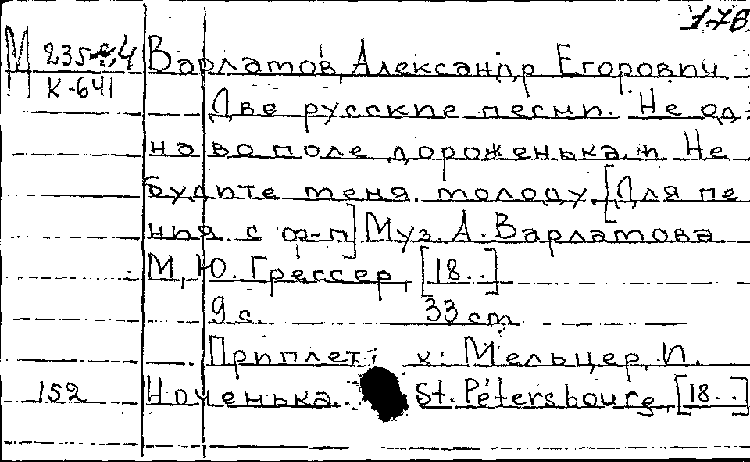 178
М 235-4 Варламов, Александр Егорович
К-641
Две русские песни. Не од-
на во поле дороженька. и Не
будите меня молоду. [Для пе
ния с ф-п] Муз. А. Варламова
М, Ю. Грессер, [18..]
9 с. 33 cm.
Приплет: к: Мельцер, И.
152 Ноченька. St. Pétersbourg, [18..]